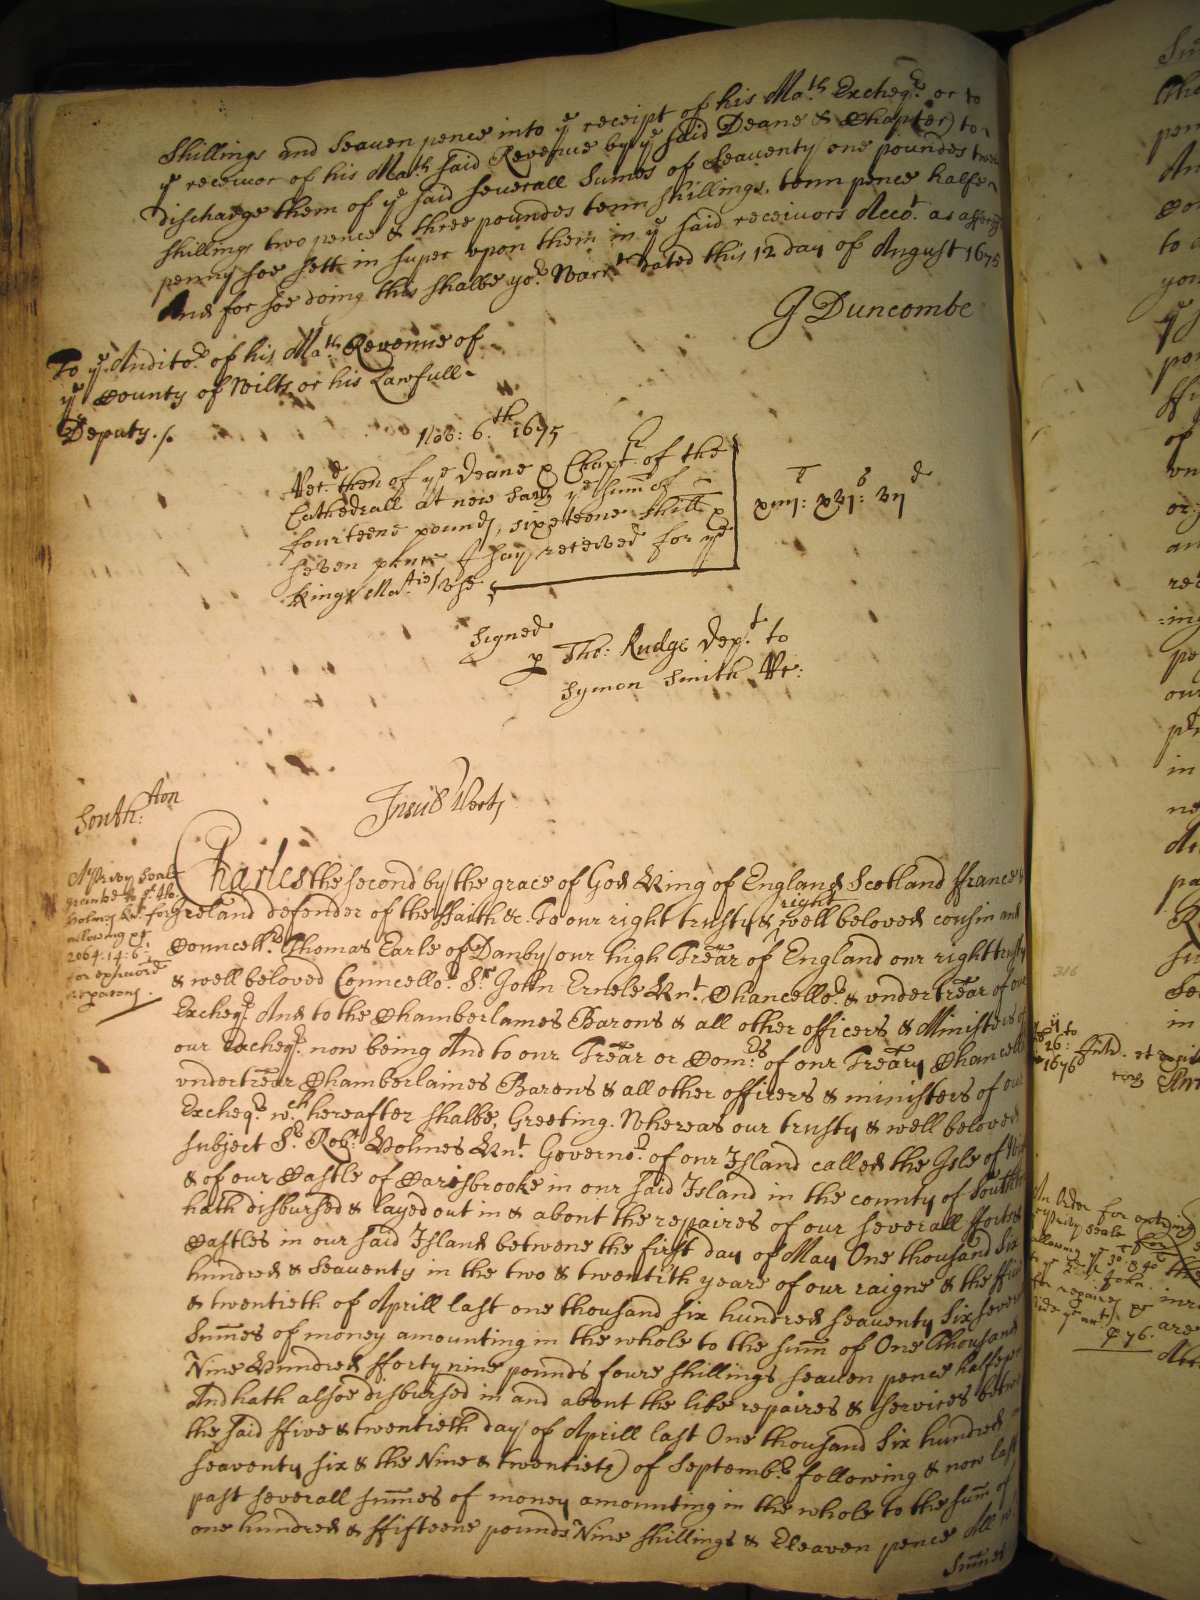 Shillings and Seaven pence into ye receipt of his Mats Excheqr or to
ye receivor of his Mats said Revenue by ye said Deane & Chapter) to
discharge them of ye said severall Sumes of Seaventy one poundes twelve
shillings two pence & three poundes tenn shillings, tenn pence halfe
penny soe sett in super upon them in ye said receivors Accot. as aforesd
And for soe doing this shalbe yor. Warrt dated this 12 day of August 1675
J Duncombe
To ye Auditor of his Mats Revenue of
ye County of Wilts or his Lawfull
Deputy./.
Nov: 6th 1675
Recd then of ye Deane & Chaptr of the
Cathedrall at new Sarz ye summ of
fourteene pounds, sixeteene shill &
seven pence I say received for ye
Kings Maties use
xiiijl: xvjs: vijd
Signed
p Tho: Rudge Dept to
Symon Smith Re:
South:ton
Insul Vect
A Privy Seale
granted to Sr Ro.
Holmes Kt. for
allowing of
2064:14:6:
for expended
reparons.
Charles the second by the grace of God King of England Scotland ffrance &
Ireland defender of the ffaith &c. To our right trusty & right well beloved cousin and
Councellr Thomas Earle of Danby our high Trear of England our right trusty
& well beloved Councellor Sr John Ernele Knt. Chancellor & undertrear of our
Excheqr And to the Chamberlaines Barons & all other officers & Ministers of
our Excheqr now being And to our Trear or Comrs of our Treary Chancellr
undertrear Chamberlaines Barons & all other officers & ministers of our
Excheqr wch hereafter shalbe, Greeting. Whereas our trusty & well beloved
subject Sr Robt Holmes Knt. Governor of our Island called the Isle of Wight
& of our Castle of Carisbrooke in our said Island in the county of Southton
hath disbursed & layed out in & about the repaires of our severall fforts &
Castles in our said Island betweene the first day of May One thousand Six
hundred & Seaventy in the two & twentith yeare of our raigne & the ffive
& twentieth of Aprill last one thousand six hundred seaventy six severall
Summes of money amounting in the whole to the summ of One thousand
Nine Hundred fforty nine pounds foure shillings seaven pence halfepeny
And hath alsoe disbursed in and about the like repaires & services betweene
the said ffive & twentieth day of Aprill last One thousand Six hundred
seaventy six & the Nine & twentieth) of Septembr. following & now last
past severall summes of money amounting in the whole to the summ of
one hundred & ffifteene pounds Nine shillings & Eleaven pence All wch
Summes
316
1676
An Order for
Privy Seale
allowing
for repaires